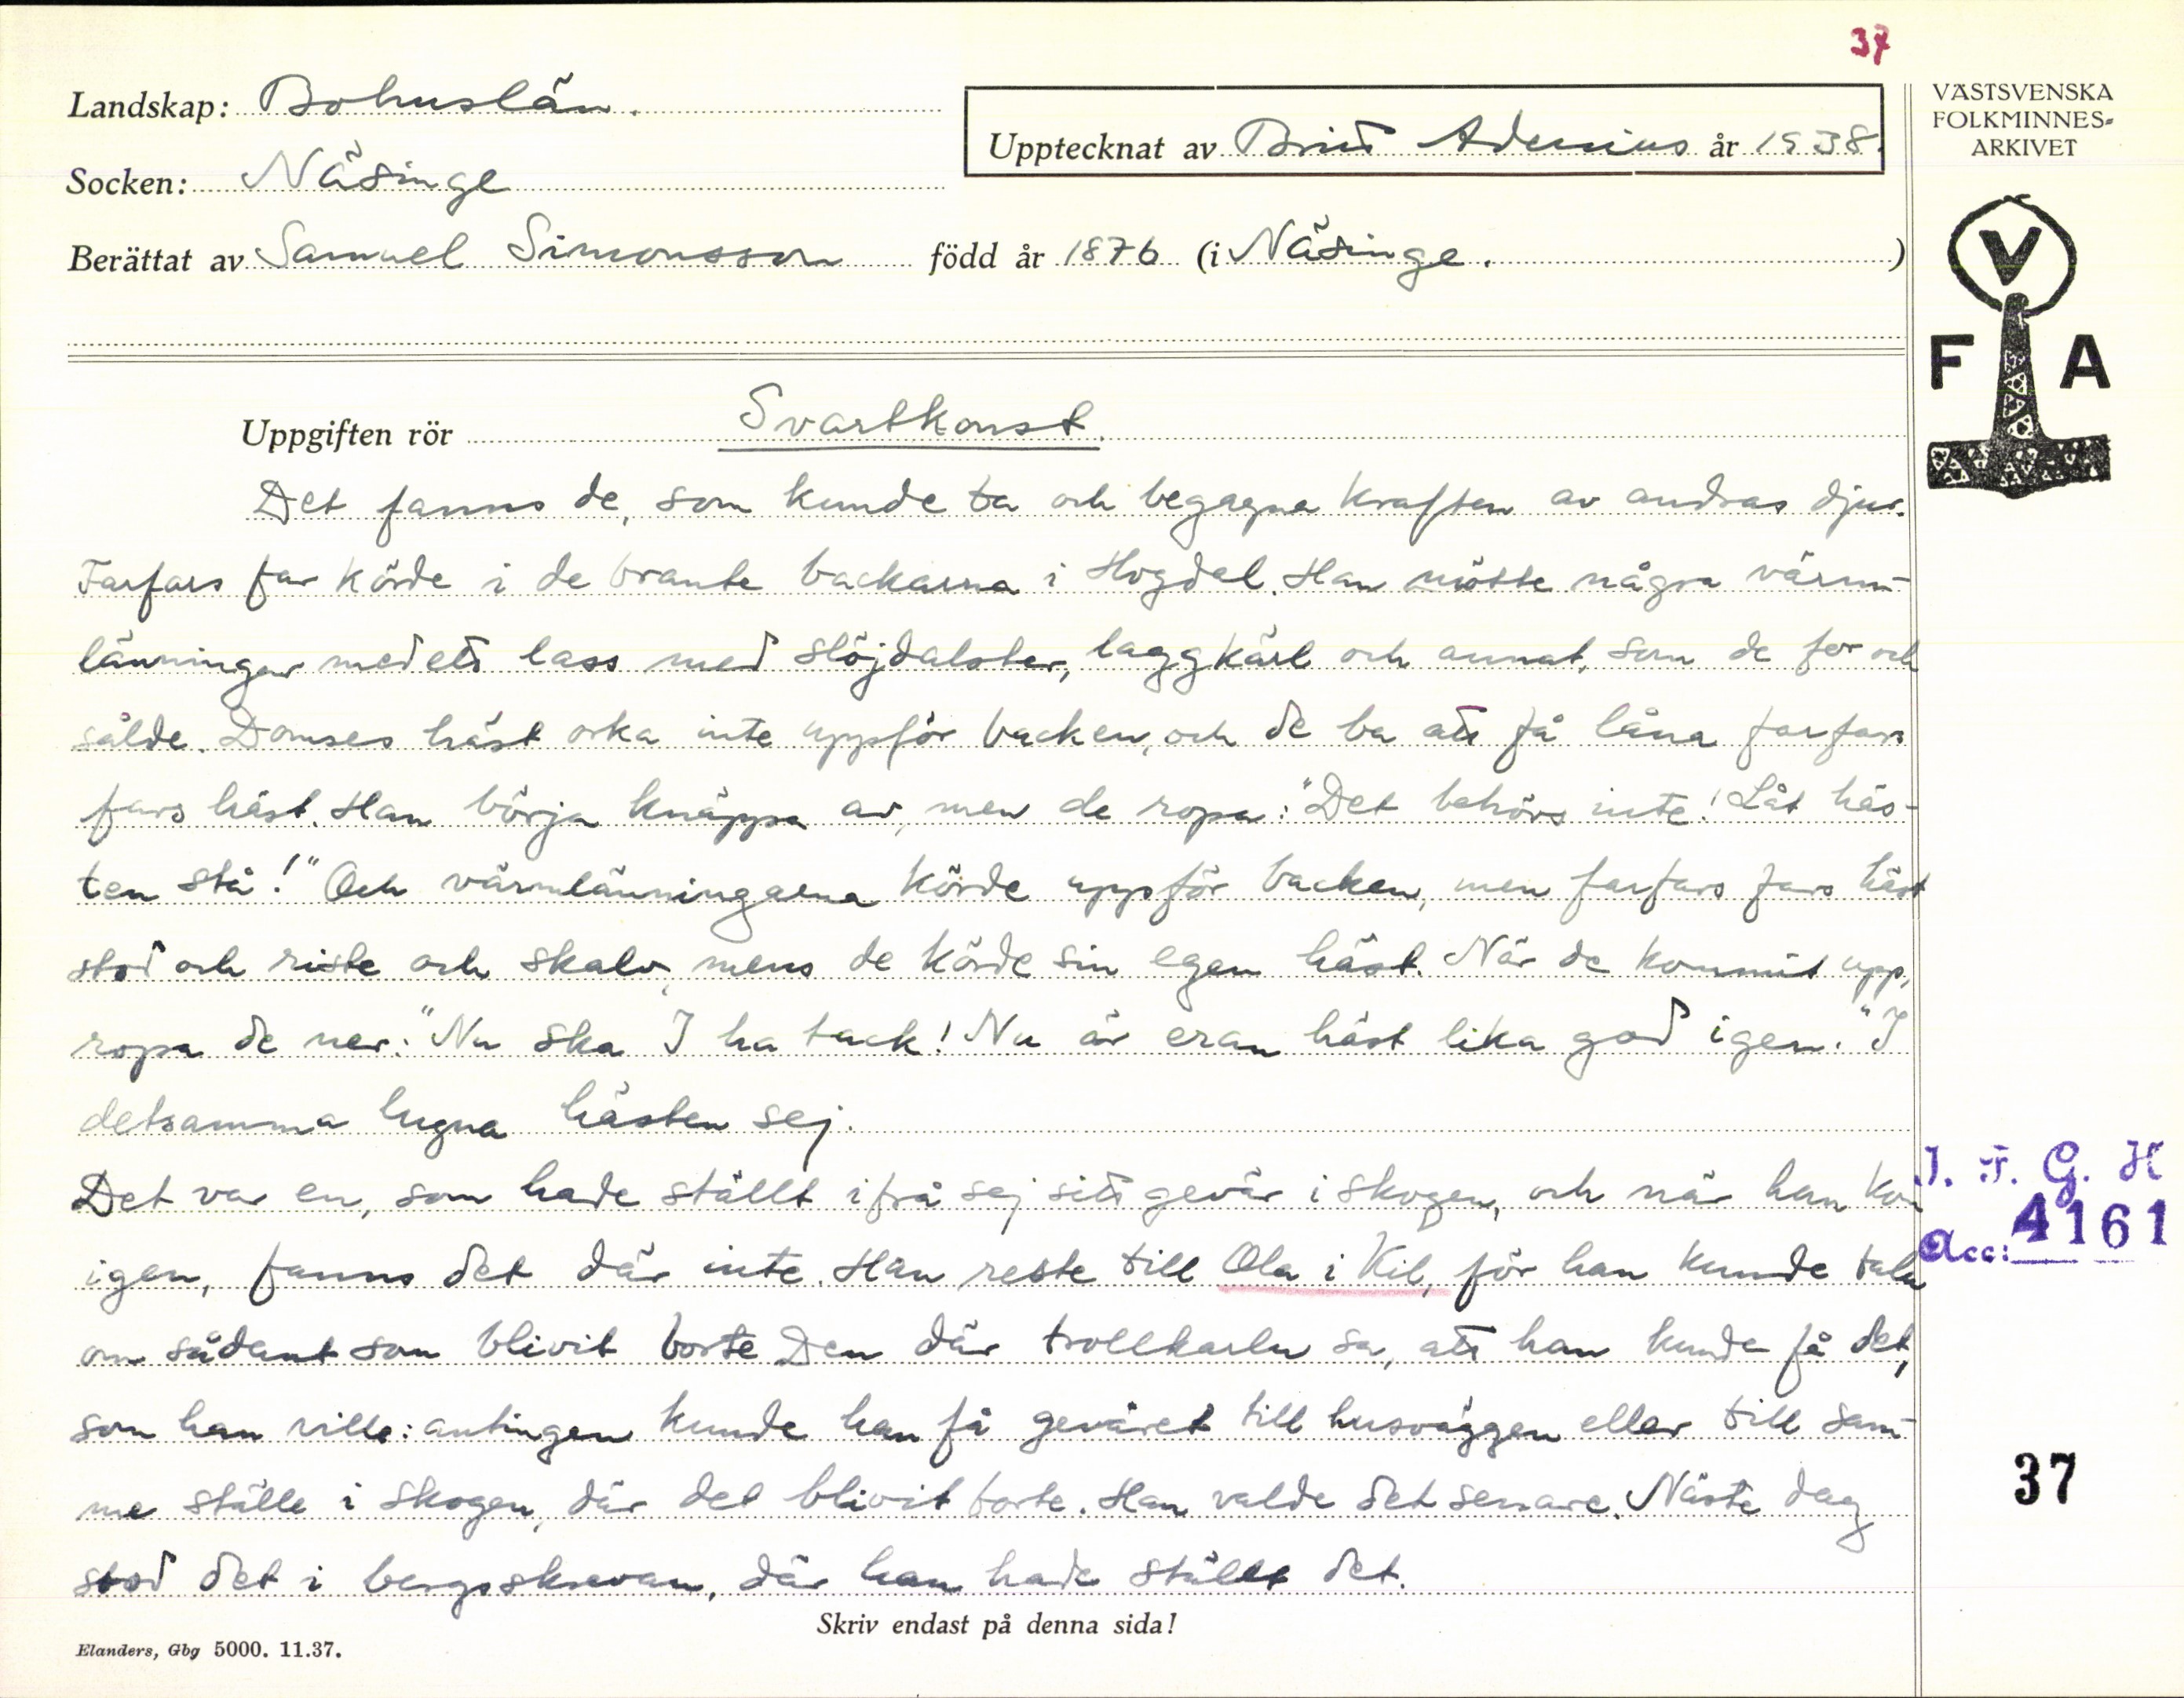 37
Landskap: Bohuslän.
Upptecknat av Brit Adenius år 1938.
VÄSTSVENSKA
FOLKMINNES-
ARKIVET
Socken: Näsinge
Berättat av Samuel Simonsson född år 1876 (i Näsinge. )
V
F A
Uppgiften rör Svartkonst.
Det fanns de, som kunde ta och begagna kraften av andras djur.
Farfars far körde i de branta backarna i Hogdal. Han mötte några värm-
länningar med ett lass med slöjdalster, laggkärl och annat, som de for och
sålde. Domses häst orka inte uppför backen, och de ba att få låna farfars
fars häst. Han börja knäppa av, men de ropa: "Det behövs inte! Låt häs-
ten stå!" Och värmlänningarna körde uppför backen, men farfars fars häst
stod och riste och skalv, mens de körde sin egen häst. När de kommit upp,
ropa de ner: "Nu ska I ha tack! Nu är eran häst lika god igen." I
detsamma lugna hästen sej.
Det var en, som hade ställt ifrå sej sitt gevär i skogen, och när han kom
igen, fanns det där inte. Han reste till Ola i Kil, för han kunde tala
om sådant som blivit borte. Den där trollkarln sa, att han kunde få det,
som han ville: antingen kunde han få geväret till husväggen eller till sam-
me ställe i skogen, där det blivit borte. Han valde det senare. Näste dag
stod det i bergsskrevan, där han hade ställt det.
I. F. G. H
Acc: 4161
37
Skriv endast på denna sida!
Elanders, Gbg 5000. 11.37.